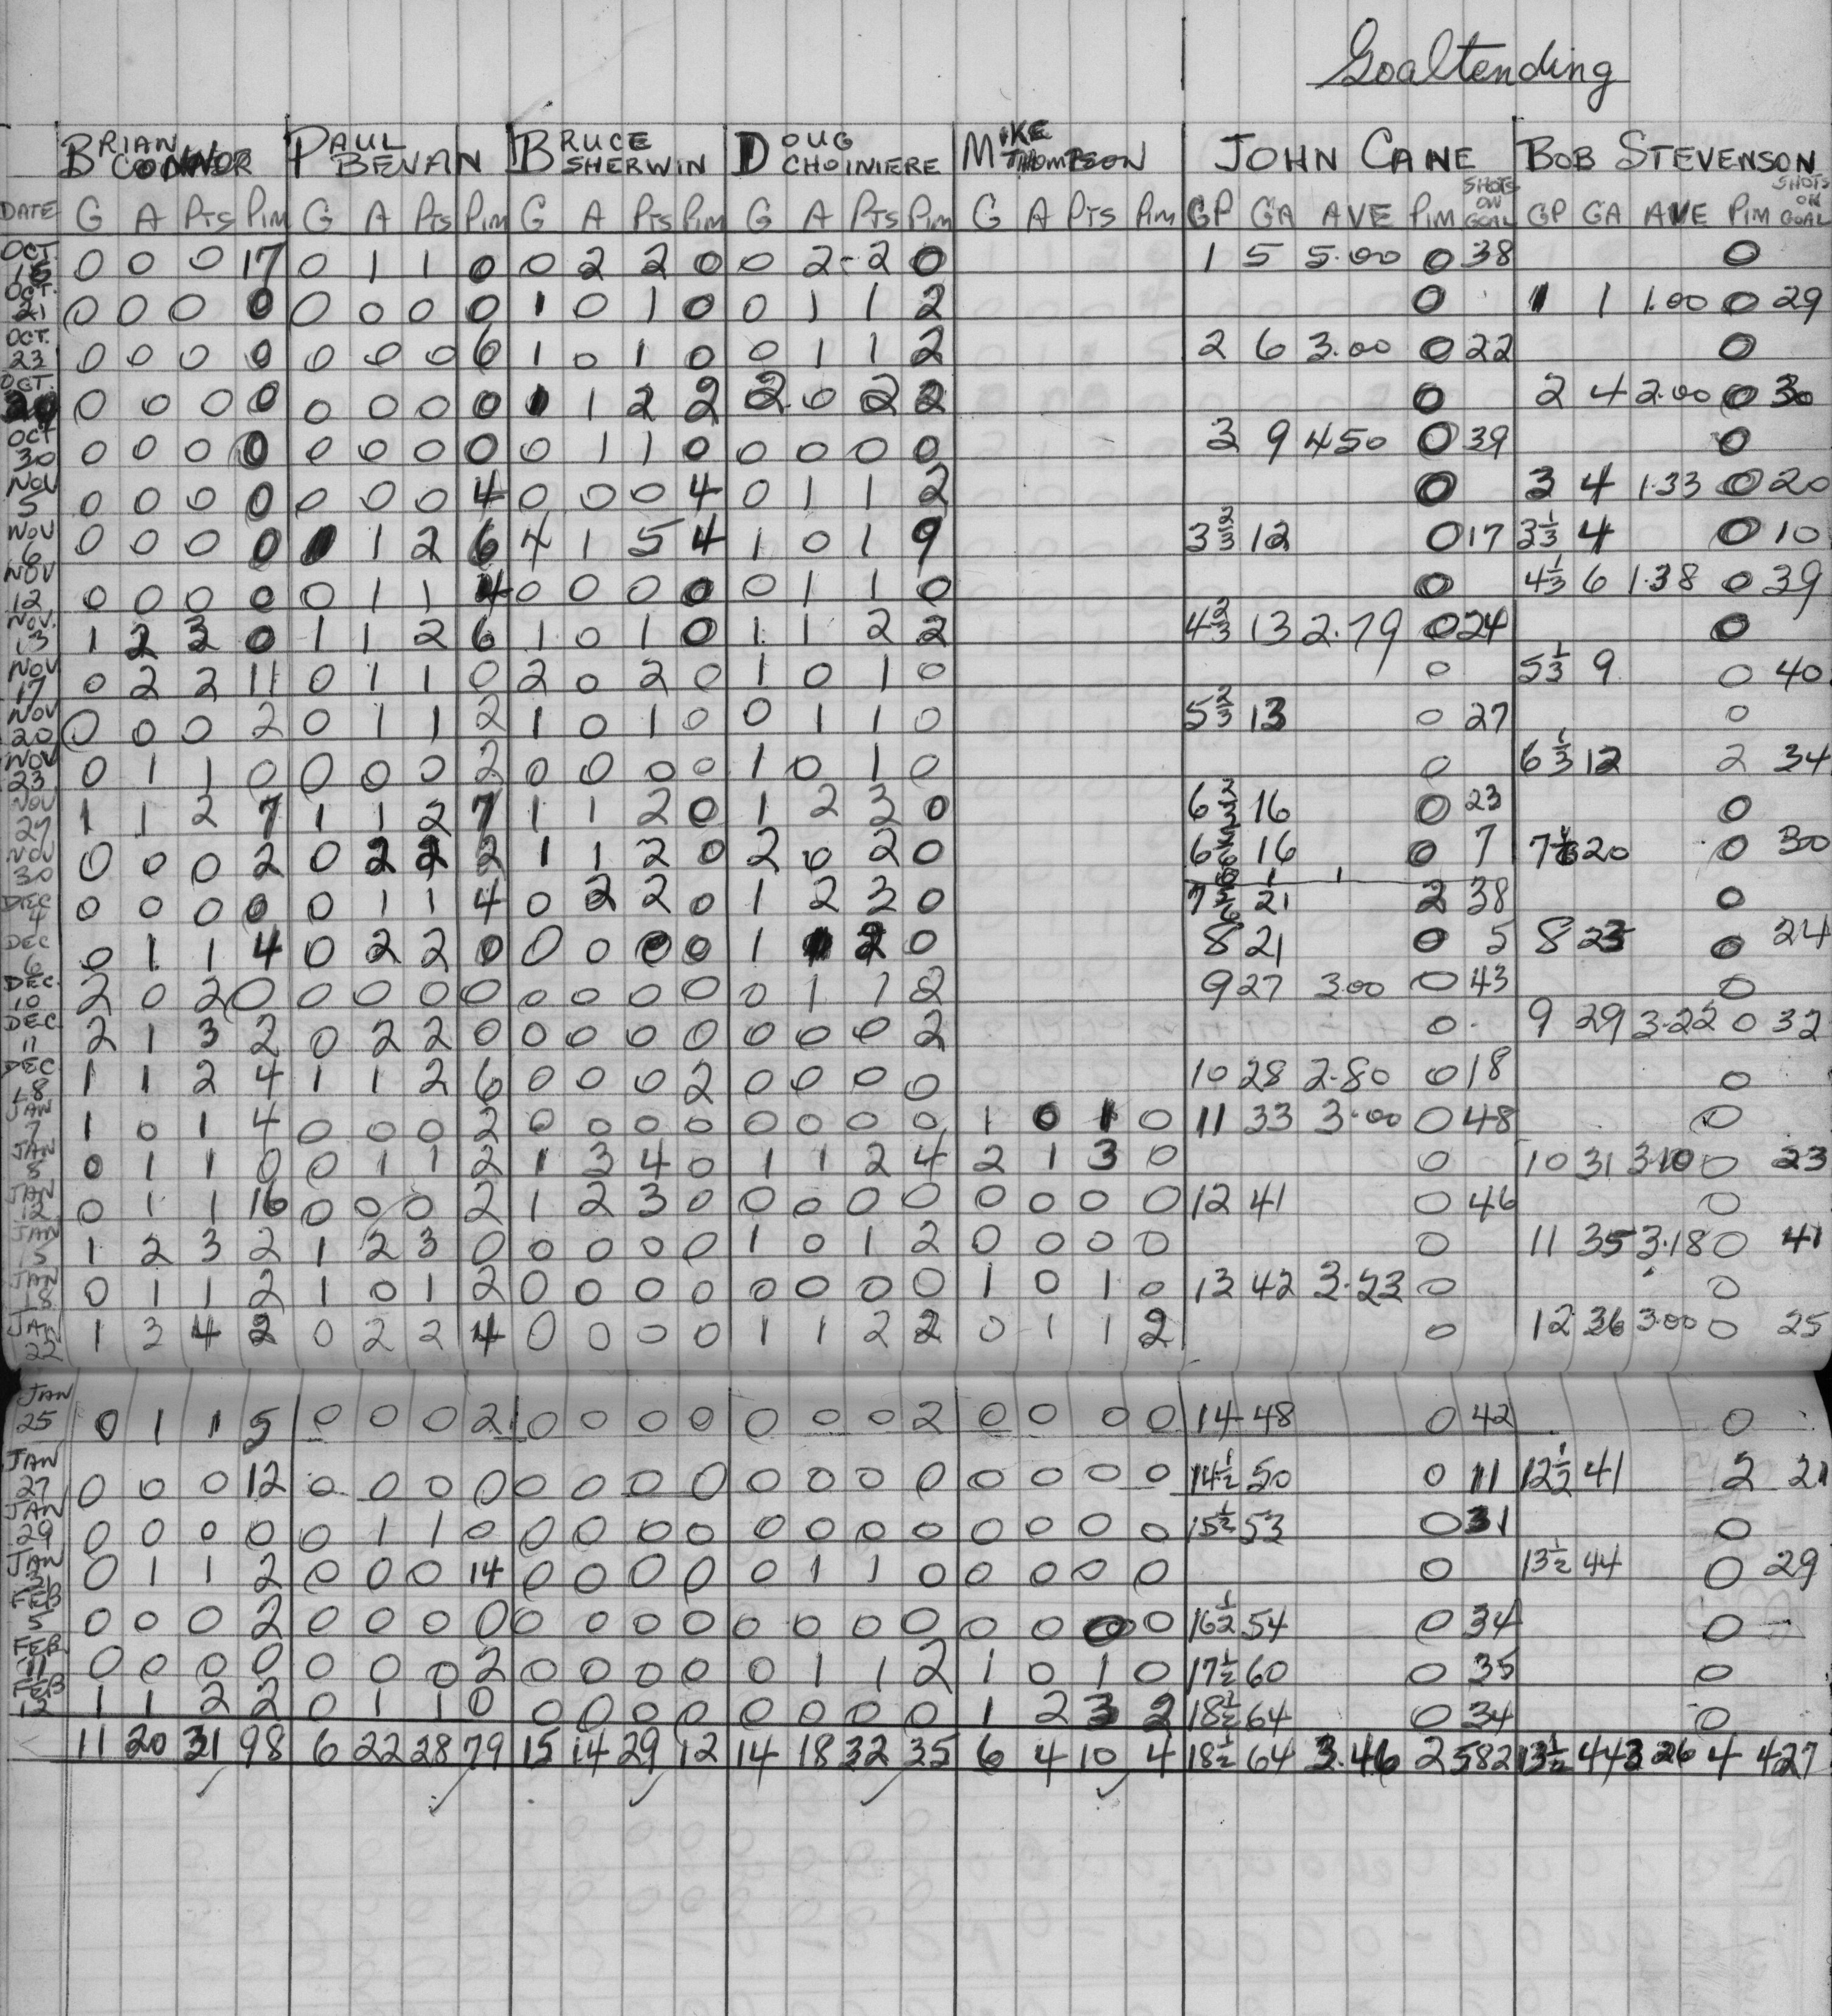 Goaltending
BRIAN CONNOR PAUL BEVAN BRUCE SHERWIN DOUG CHOINIERE MIKE THOMPSON JOHN CANE BOB STEVENSON
DATE G A PTS PIM G A PTS PIM G A PTS PIM G A PTS PIM G A PTS PIM GP GA AVE PIM SHOTS ON GOAL GP GA AVE PIM SHOTS ON GOAL
OCT 15 0 0 0 17 0 1 1 0 0 2 2 0 0 2 2 0 1 5 5.00 0 38 0
OCT. 21 0 0 0 0 0 0 0 0 1 0 1 0 0 1 1 2 0 1 1 1.00 0 29
OCT. 23 0 0 0 0 0 0 0 6 1 0 1 0 0 1 1 2 2 6 3.00 0 22 0
OCT. 0 0 0 0 0 0 0 0 1 1 2 2 2 0 2 2 0 2 4 2.00 0 30
OCT 30 0 0 0 0 0 0 0 0 0 1 1 0 0 0 0 0 3 9 450 0 39 0
NOV 5 0 0 0 0 0 0 0 4 0 0 0 4 0 1 1 2 0 3 4 1.33 0 20
NOV 6 0 0 0 0 1 2 6 4 1 5 4 1 0 1 9 3 2/3 12 0 17 3 1/3 4 0 10
NOV 12 0 0 0 0 0 1 1 4 0 0 0 0 0 1 1 0 0 4 1/3 6 1.38 0 39
NOV. 13 1 2 3 0 1 1 2 6 1 0 1 0 1 1 2 2 4 2/3 13 2.79 0 24 0
NOV 17 0 2 2 11 0 1 1 0 2 0 2 0 1 0 1 0 0 5 1/3 9 0 40
NOV 20 0 0 0 2 0 1 1 2 1 0 1 0 0 1 1 0 5 2/3 13 0 27 0
NOV 23 0 1 1 0 0 0 0 2 0 0 0 0 1 0 1 0 0 6 1/3 12 2 34
NOV 27 1 1 2 7 1 1 2 7 1 1 2 0 1 2 3 0 6 2/3 16 0 23 0
NOV 30 0 0 0 2 0 2 2 2 1 1 2 0 2 0 2 0 6 16 0 7 7 20 0 30
DEC 4 0 0 0 0 0 1 1 4 0 2 2 0 1 2 3 0 7 21 2 38 0
DEC 6 0 1 1 4 0 2 2 0 0 0 0 0 1 1 2 0 8 21 0 5 8 23 0 24
DEC. 10 2 0 2 0 0 0 0 0 0 0 0 0 0 1 1 2 9 27 3.00 0 43 0
DEC 11 2 1 3 2 0 2 2 0 0 0 0 0 0 0 0 2 0 9 29 3.22 0 32
DEC 18 1 1 2 4 1 1 2 6 0 0 0 2 0 0 0 0 10 28 2.80 0 18 0
JAN 7 1 0 1 4 0 0 0 2 0 0 0 0 0 0 0 0 1 0 1 0 11 33 3.00 0 48 0
JAN 8 0 1 1 0 0 1 1 2 1 3 4 0 1 1 2 4 2 1 3 0 0 10 31 3.10 0 23
JAN 12 0 1 1 16 0 0 0 2 1 2 3 0 0 0 0 0 0 0 0 0 12 41 0 46 0
JAN 15 1 2 3 2 1 2 3 0 0 0 0 0 1 0 1 2 0 0 0 0 0 11 35 3.18 0 41
JAN 18 0 1 1 2 1 0 1 2 0 0 0 0 0 0 0 0 1 0 1 0 13 42 3.23 0 0
JAN 22 1 3 4 2 0 2 2 4 0 0 0 0 1 1 2 2 0 1 1 2 0 12 36 3.00 0 25
JAN 25 0 1 1 5 0 0 0 2 0 0 0 0 0 0 0 2 0 0 0 0 14 48 0 42 0
JAN 27 0 0 0 12 0 0 0 0 0 0 0 0 0 0 0 0 0 0 0 0 14 1/2 50 0 11 12 1/2 41 2 21
JAN 29 0 0 0 0 0 1 1 0 0 0 0 0 0 0 0 0 0 0 0 0 15 1/2 53 0 31 0
JAN 0 1 1 2 0 0 0 14 0 0 0 0 0 1 1 0 0 0 0 0 0 13 1/2 44 0 29
FEB 5 0 0 0 2 0 0 0 0 0 0 0 0 0 0 0 0 0 0 0 0 16 1/2 54 0 34 0
FEB 11 0 0 0 0 0 0 0 2 0 0 0 0 0 1 1 2 1 0 1 0 17 1/2 60 0 35 0
FEB 12 1 1 2 2 0 1 1 0 0 0 0 0 0 0 0 0 1 2 3 2 18 1/2 64 0 34 0
11 20 31 98 6 22 28 79 15 14 29 12 14 18 32 35 6 4 10 4 18 1/2 64 3.46 2 582 13 1/2 44 3 26 4 427